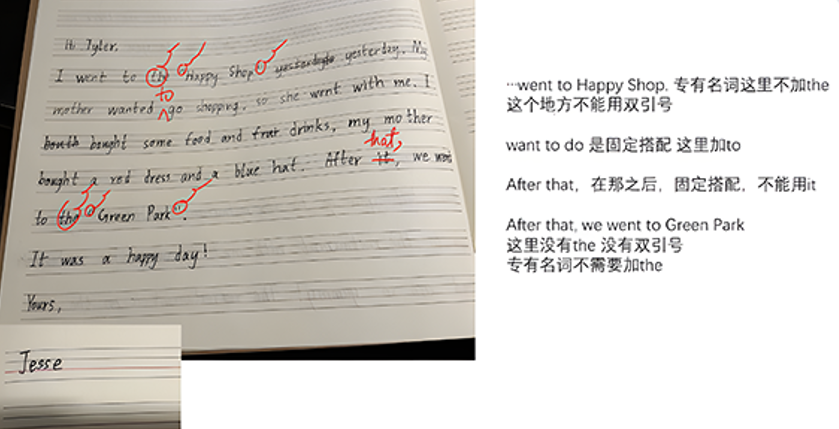 Hi Tyler,
I went to the "Happy Shop" yesterday. My
to
mother wanted go shopping, so she went with me. I
bought some food and drinks, my mother
hat,
bought a red dress and a blue hat. After it, we went
to the "Green Park".
It was a happy day!
Yours,
Jesse
…went to Happy Shop. 专有名词这里不加the
这个地方不能用双引号
want to do 是固定搭配 这里加to
After that，在那之后，固定搭配，不能用it
After that, we went to Green Park
这里没有the 没有双引号
专有名词不需要加the